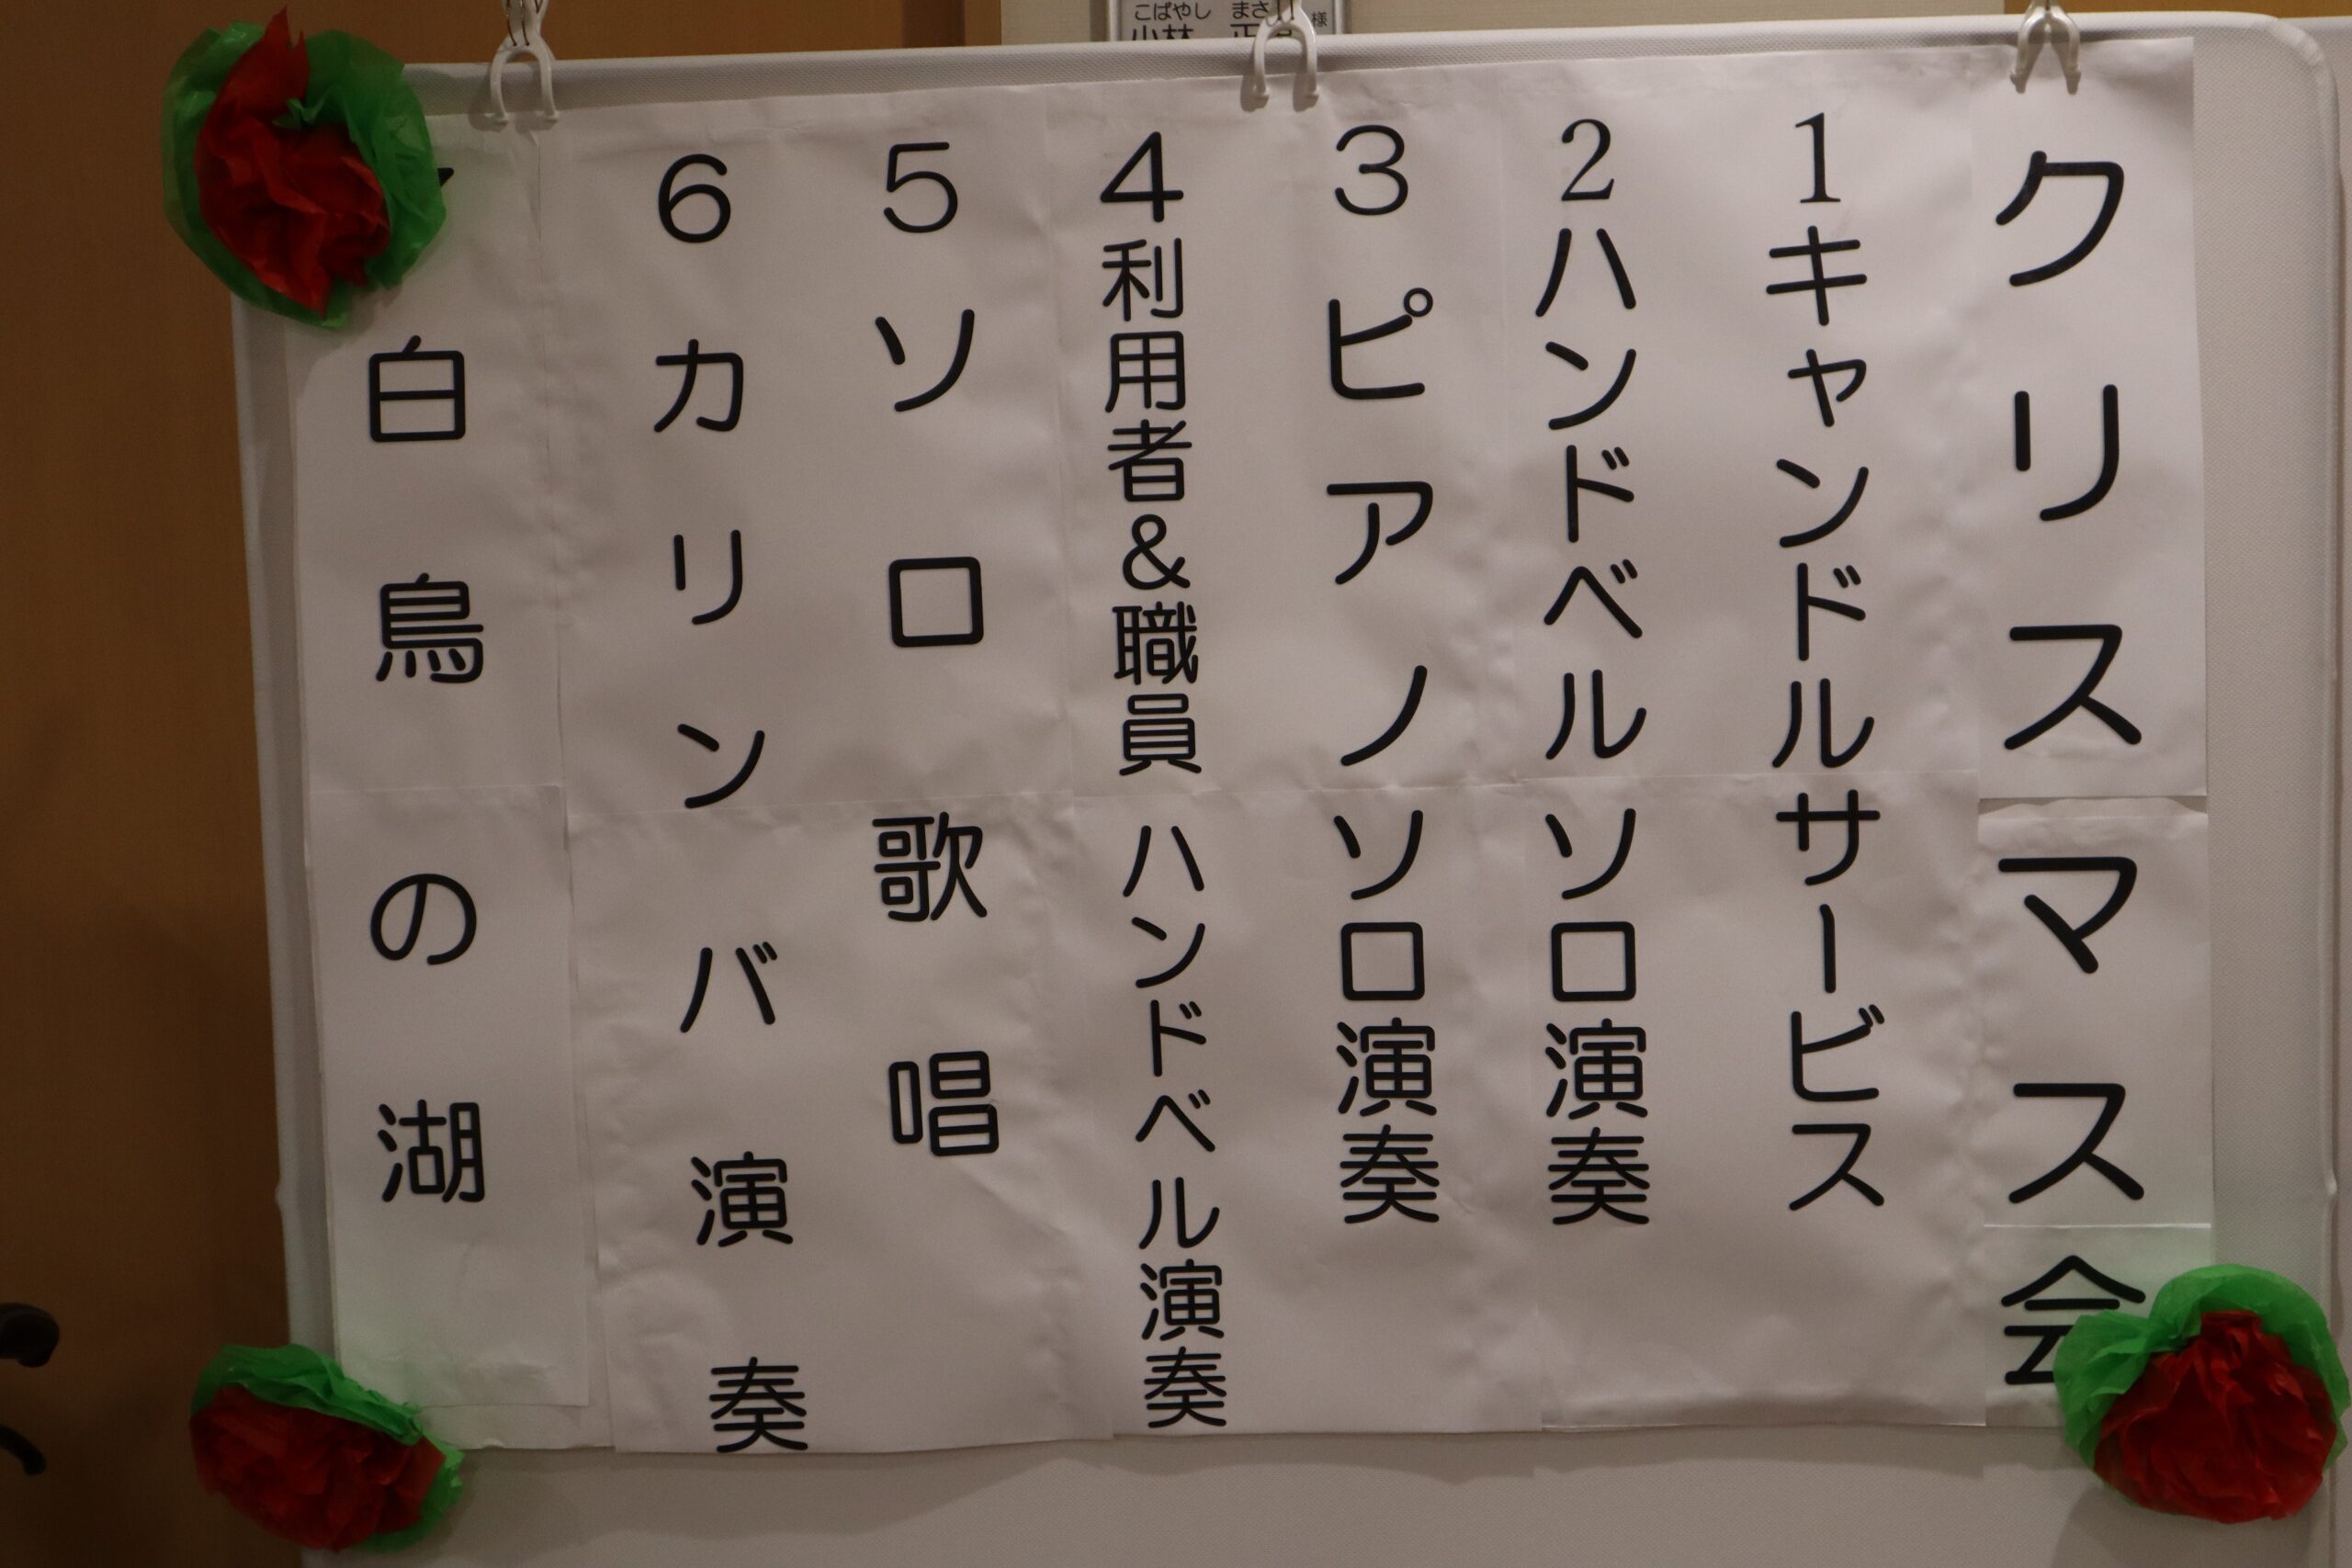 こばやし
小林
様
クリスマス会
1キャンドルサービス
2ハンドベルソロ演奏
3ピアノソロ演奏
4利用者&職員 ハンドベル演奏
5ソロ歌唱
6カリンバ演奏
白鳥の湖